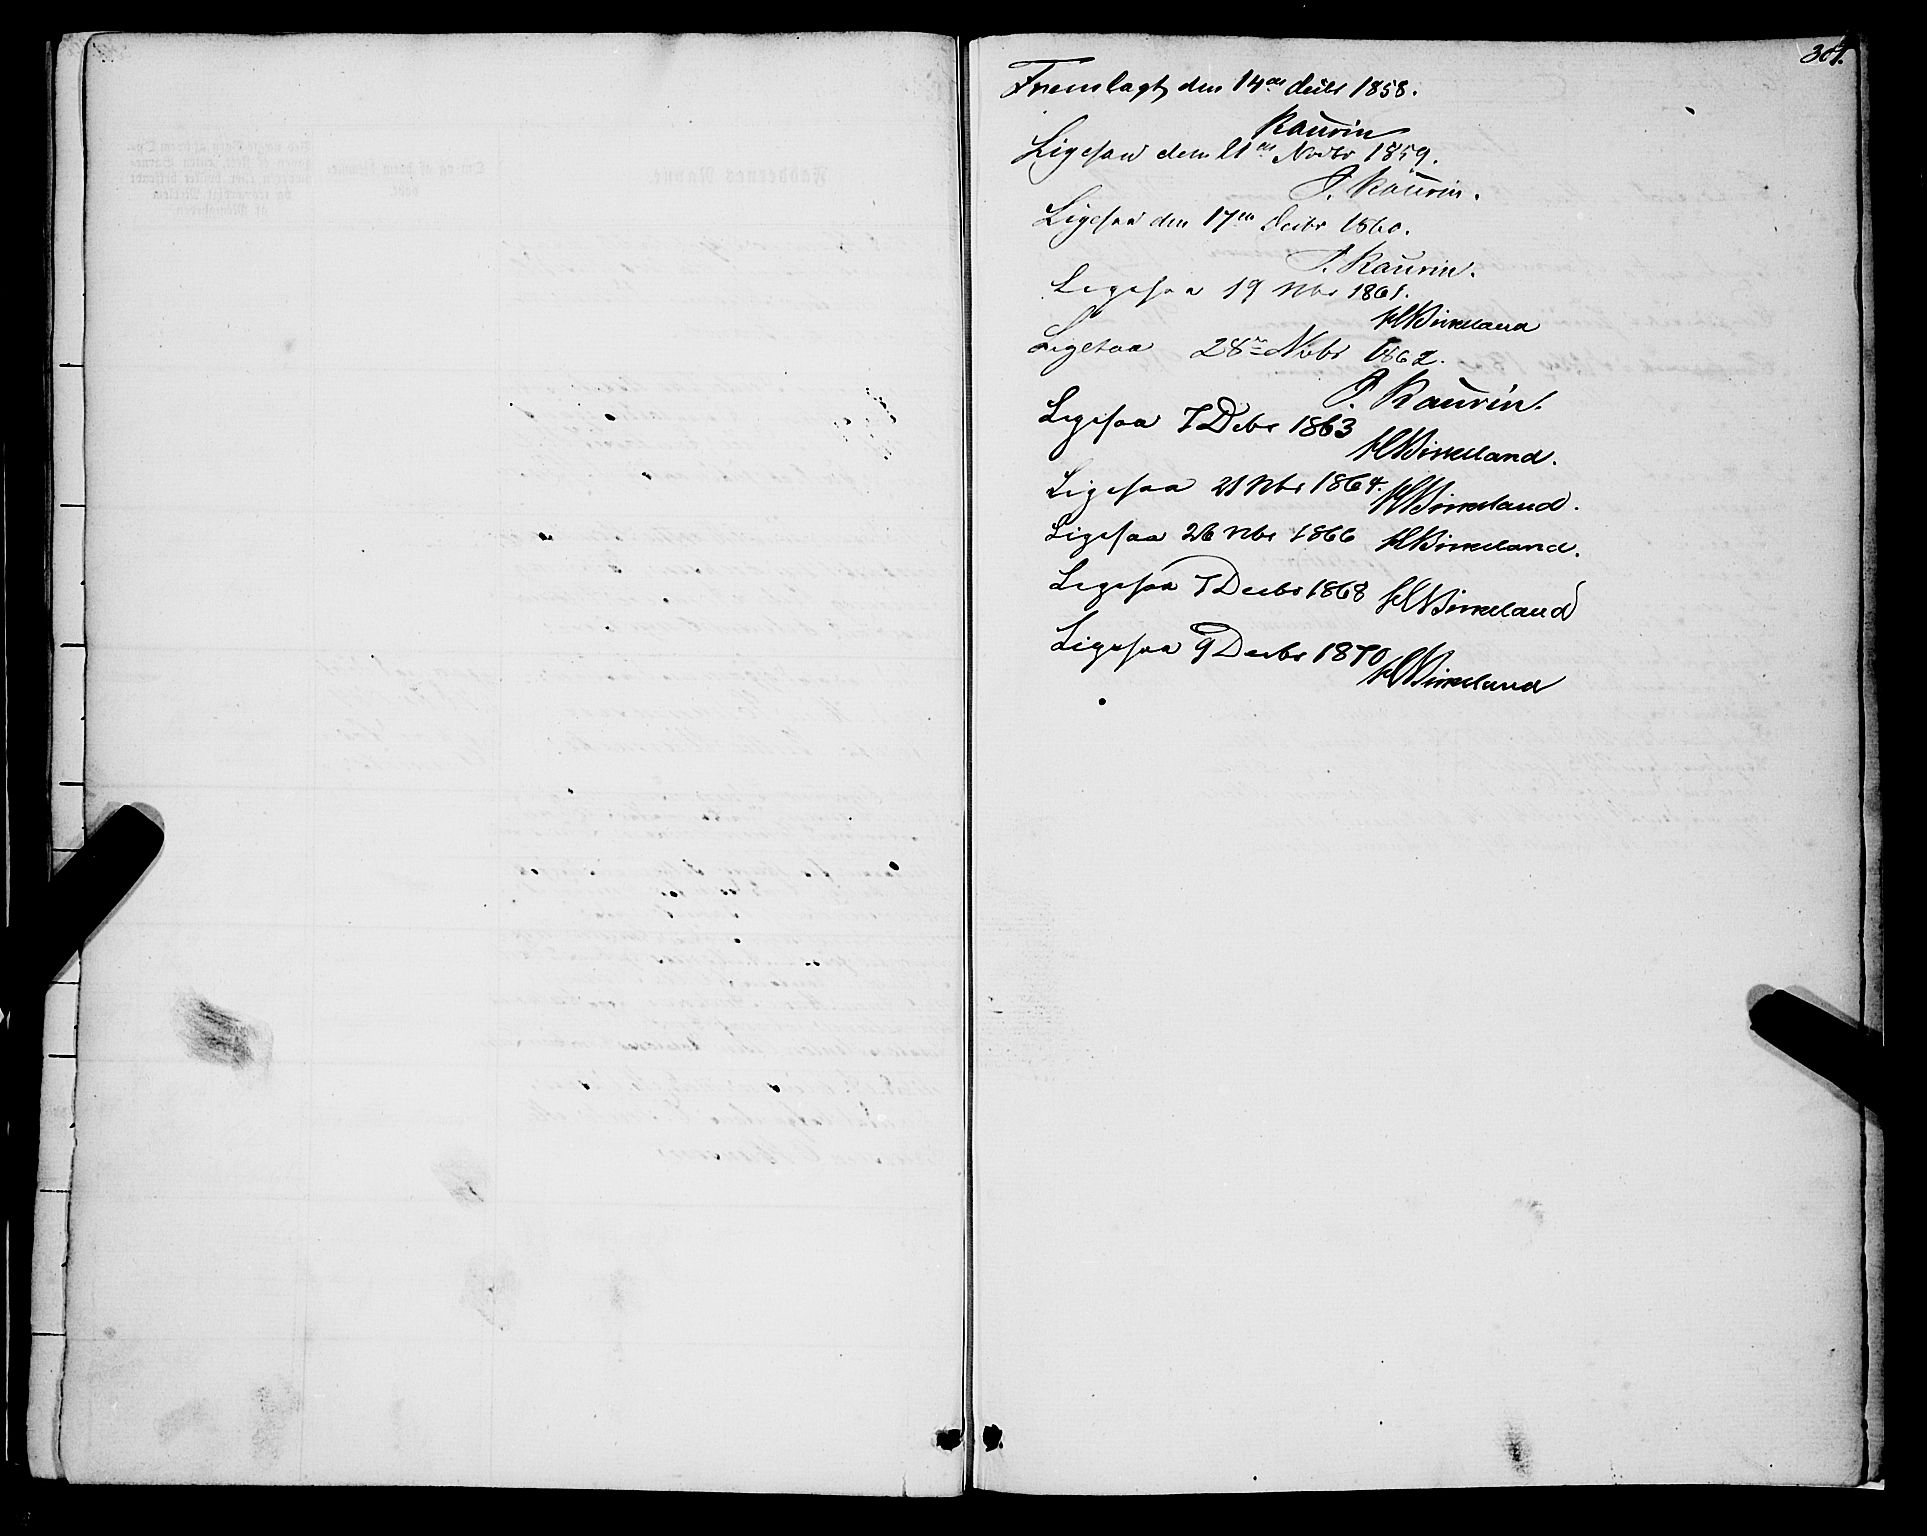 304.
Fremlagt den 14de Decbr 1858.
Kaurin
Ligesaa den 21de Novbr 1859.
P. Kaurin.
Ligesaa den 17de Decbr 1860.
P. Kaurin.
Ligesaa 19 Nbr 1861.
HBirkeland
Ligesaa 28de Novbr 1862.
P. Kaurin.
Ligesaa 7 Debr 1863
HBirkeland.
Ligesaa 21 Nbr 1864. HBirkeland.
Ligesaa 26 Nbr 1866 HBirkeland.
Ligesaa 7 Decbr 1868 HBirkeland
Ligesaa 9 Decbr 1870 HBirkeland